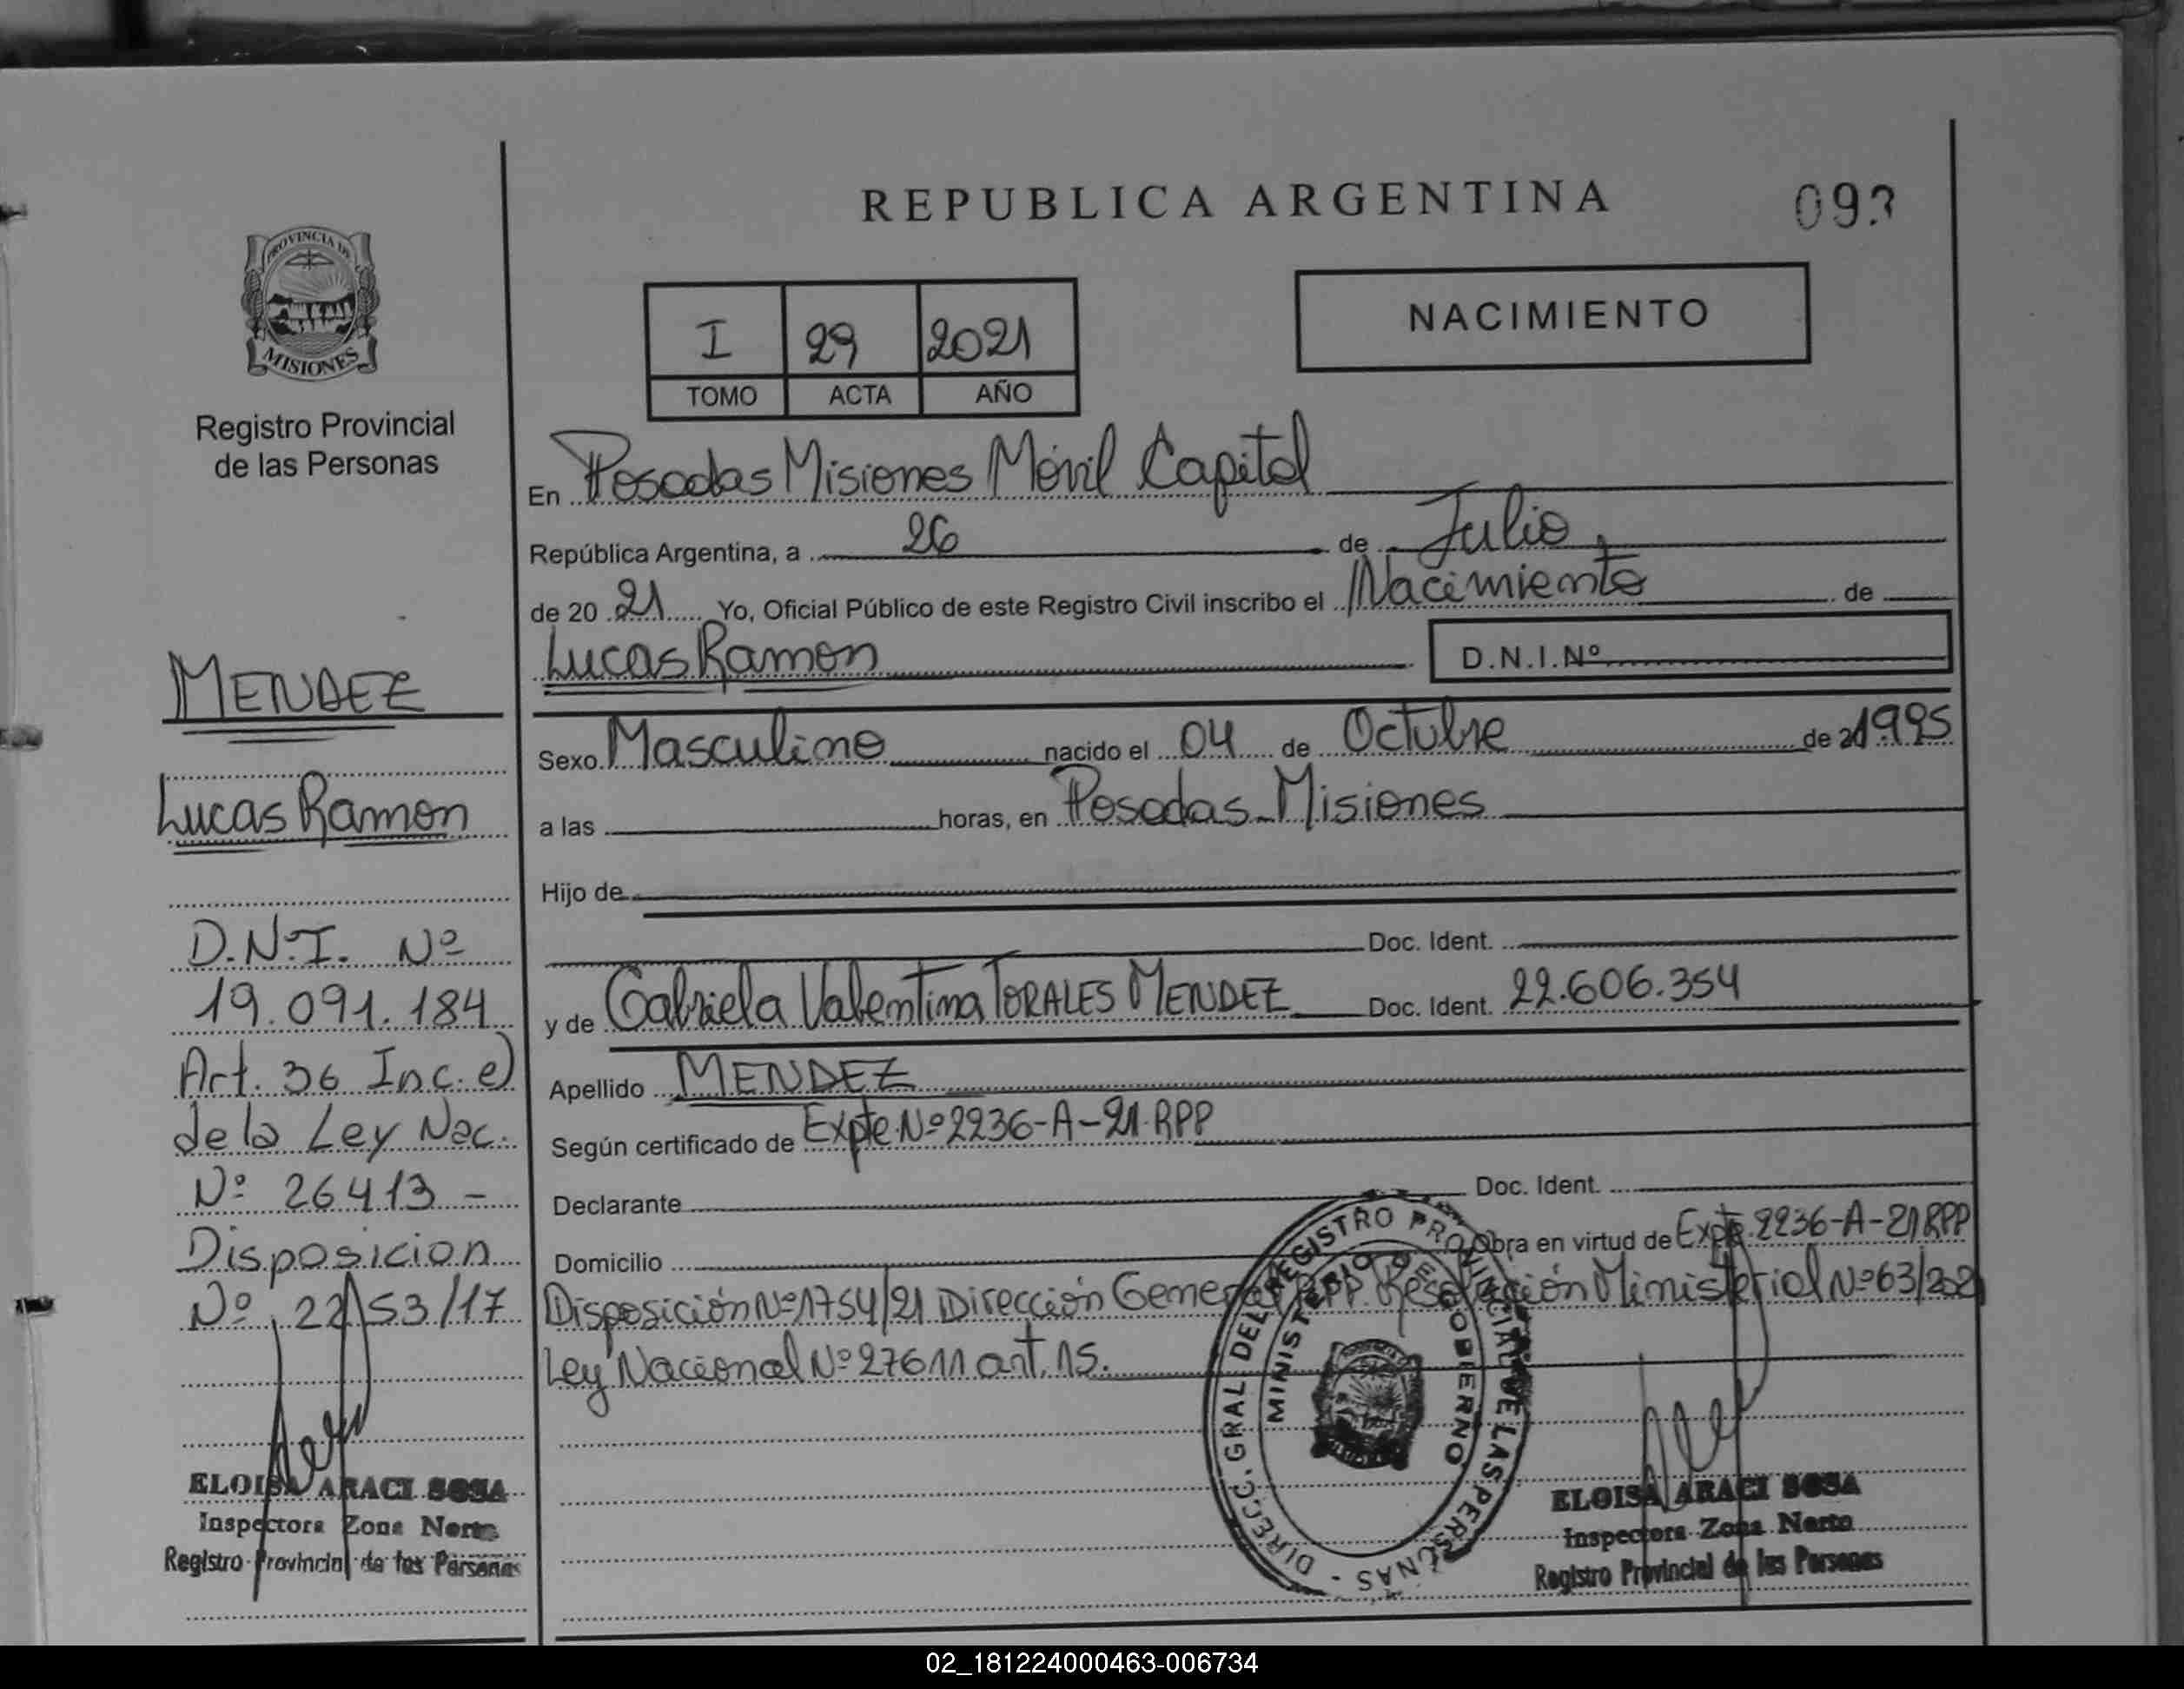 REPUBLICA ARGENTINA
093
PROVINCIA DE
MISIONES
Registro Provincial
de las Personas
NACIMIENTO
I 29 2021
TOMO ACTA AÑO
En Posadas Misiones Móvil Capital
República Argentina, a 26 de Julio,
de 20 21 Yo, Oficial Público de este Registro Civil inscribo el Nacimiento de
Lucas Ramon D.N.I.Nº
Sexo Masculino nacido el 04 de Octubre de 1995
a las horas, en Posadas Misiones
Hijo de
Doc. Ident.
y de Gabriela Valentina TORALES MENDEZ Doc. Ident. 22.606.354
Apellido MENDEZ
Según certificado de Expte Nº 2236-A-21-RPP
Declarante Doc. Ident.
Domicilio Obra en virtud de Expte. 2236-A-21 RPP
Disposición Nº 1754/21 Dirección General RPP. Resolución Ministerial Nº 63/202
Ley Nacional Nº 27611 art. 15.
MENDEZ
Lucas Ramon
D.N.I. Nº
19.091.184
Art. 36 Inc. e)
de la Ley Nac.
Nº 26413 -
Disposicion
Nº 2253/17
ELOISA ARACI SOSA
Inspectora Zona Norte
Registro Provincial de las Personas
DIRECC. GRAL. DEL REGISTRO PROVINCIAL DE LAS PERSONAS -
MINISTERIO DE GOBIERNO
ELOISA ARACI SOSA
Inspectora Zona Norte
Registro Provincial de las Personas
02_181224000463-006734